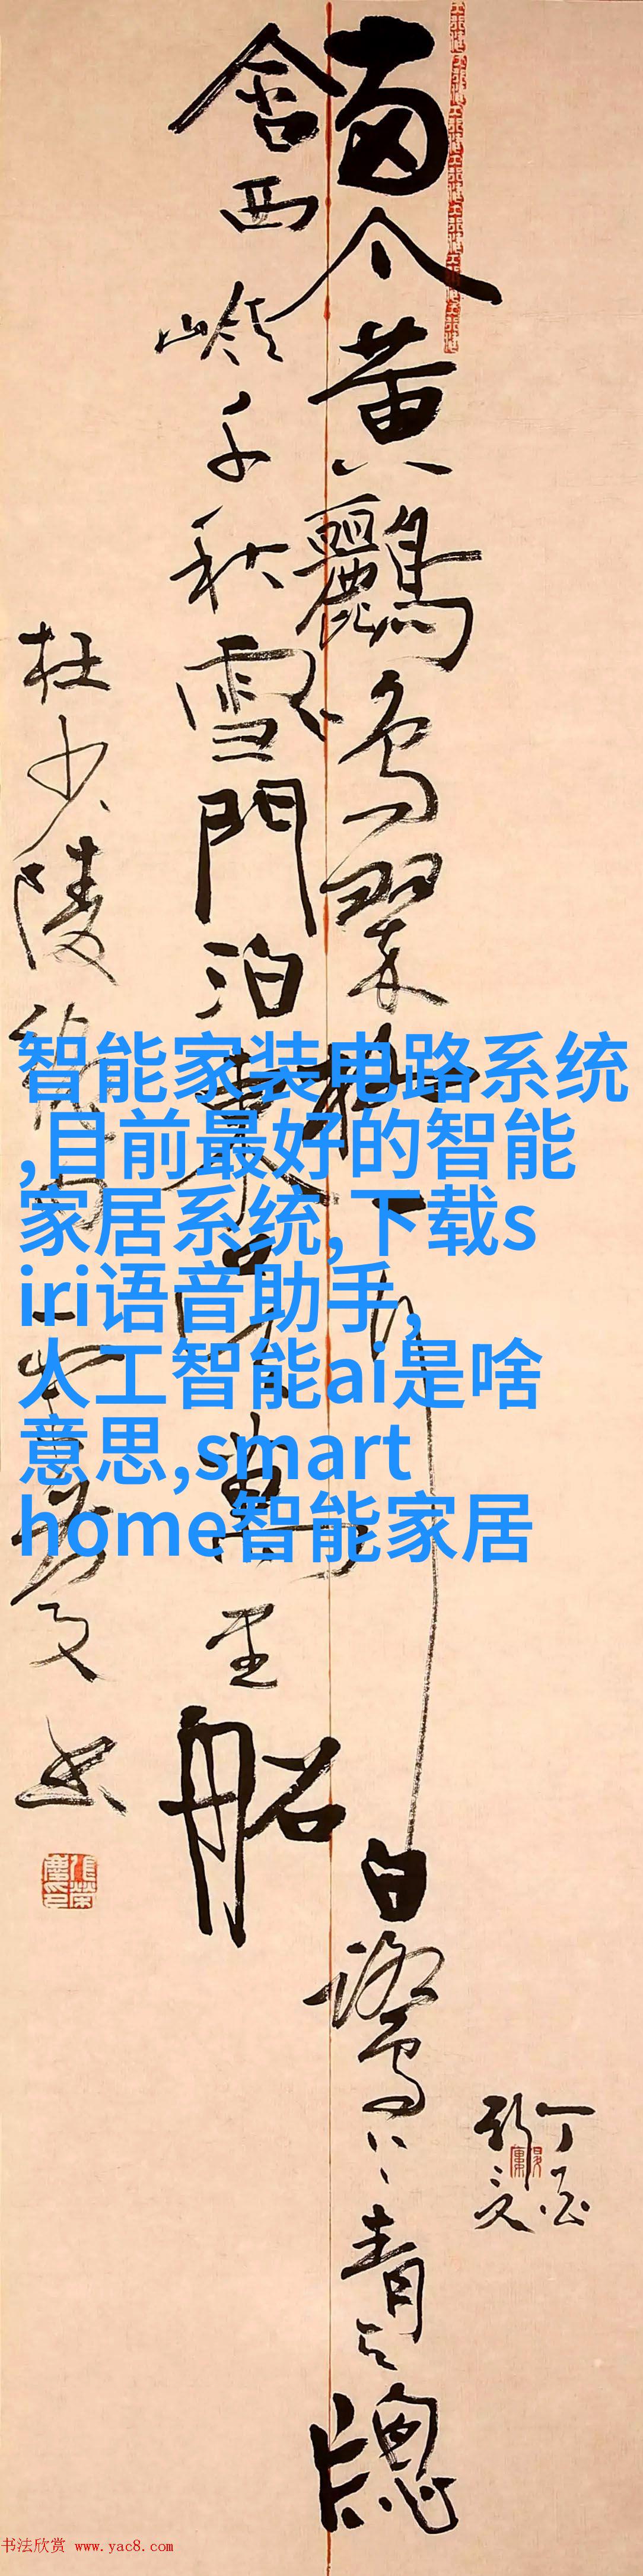 兩个黄鸝鳴翠柳一行白鷺上青天牕
含西嶺千秋雪門泊東吴萬里船
杜少陵絶句
智能家装电路系统
,目前最好的智能
家居系统,下载s
iri语音助手,
人工智能ai是啥
意思,smart
home智能家居
书法欣赏 www.yac8.com